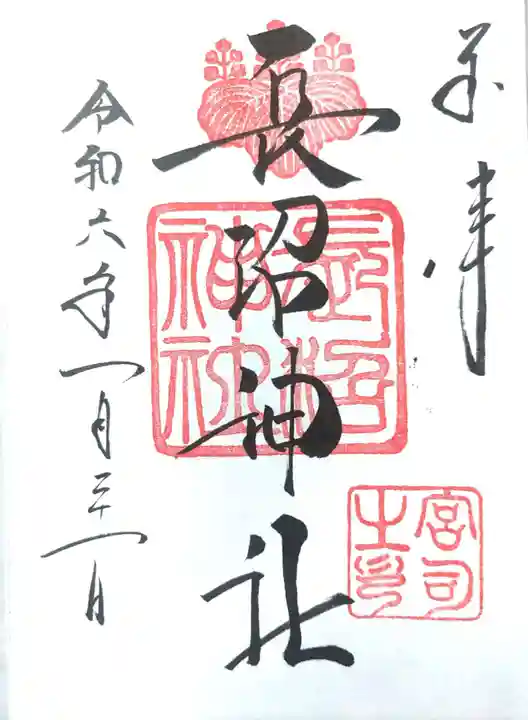 奉拝
長沼神社
長沼神社
宮司之印
令和六年一月三十一日